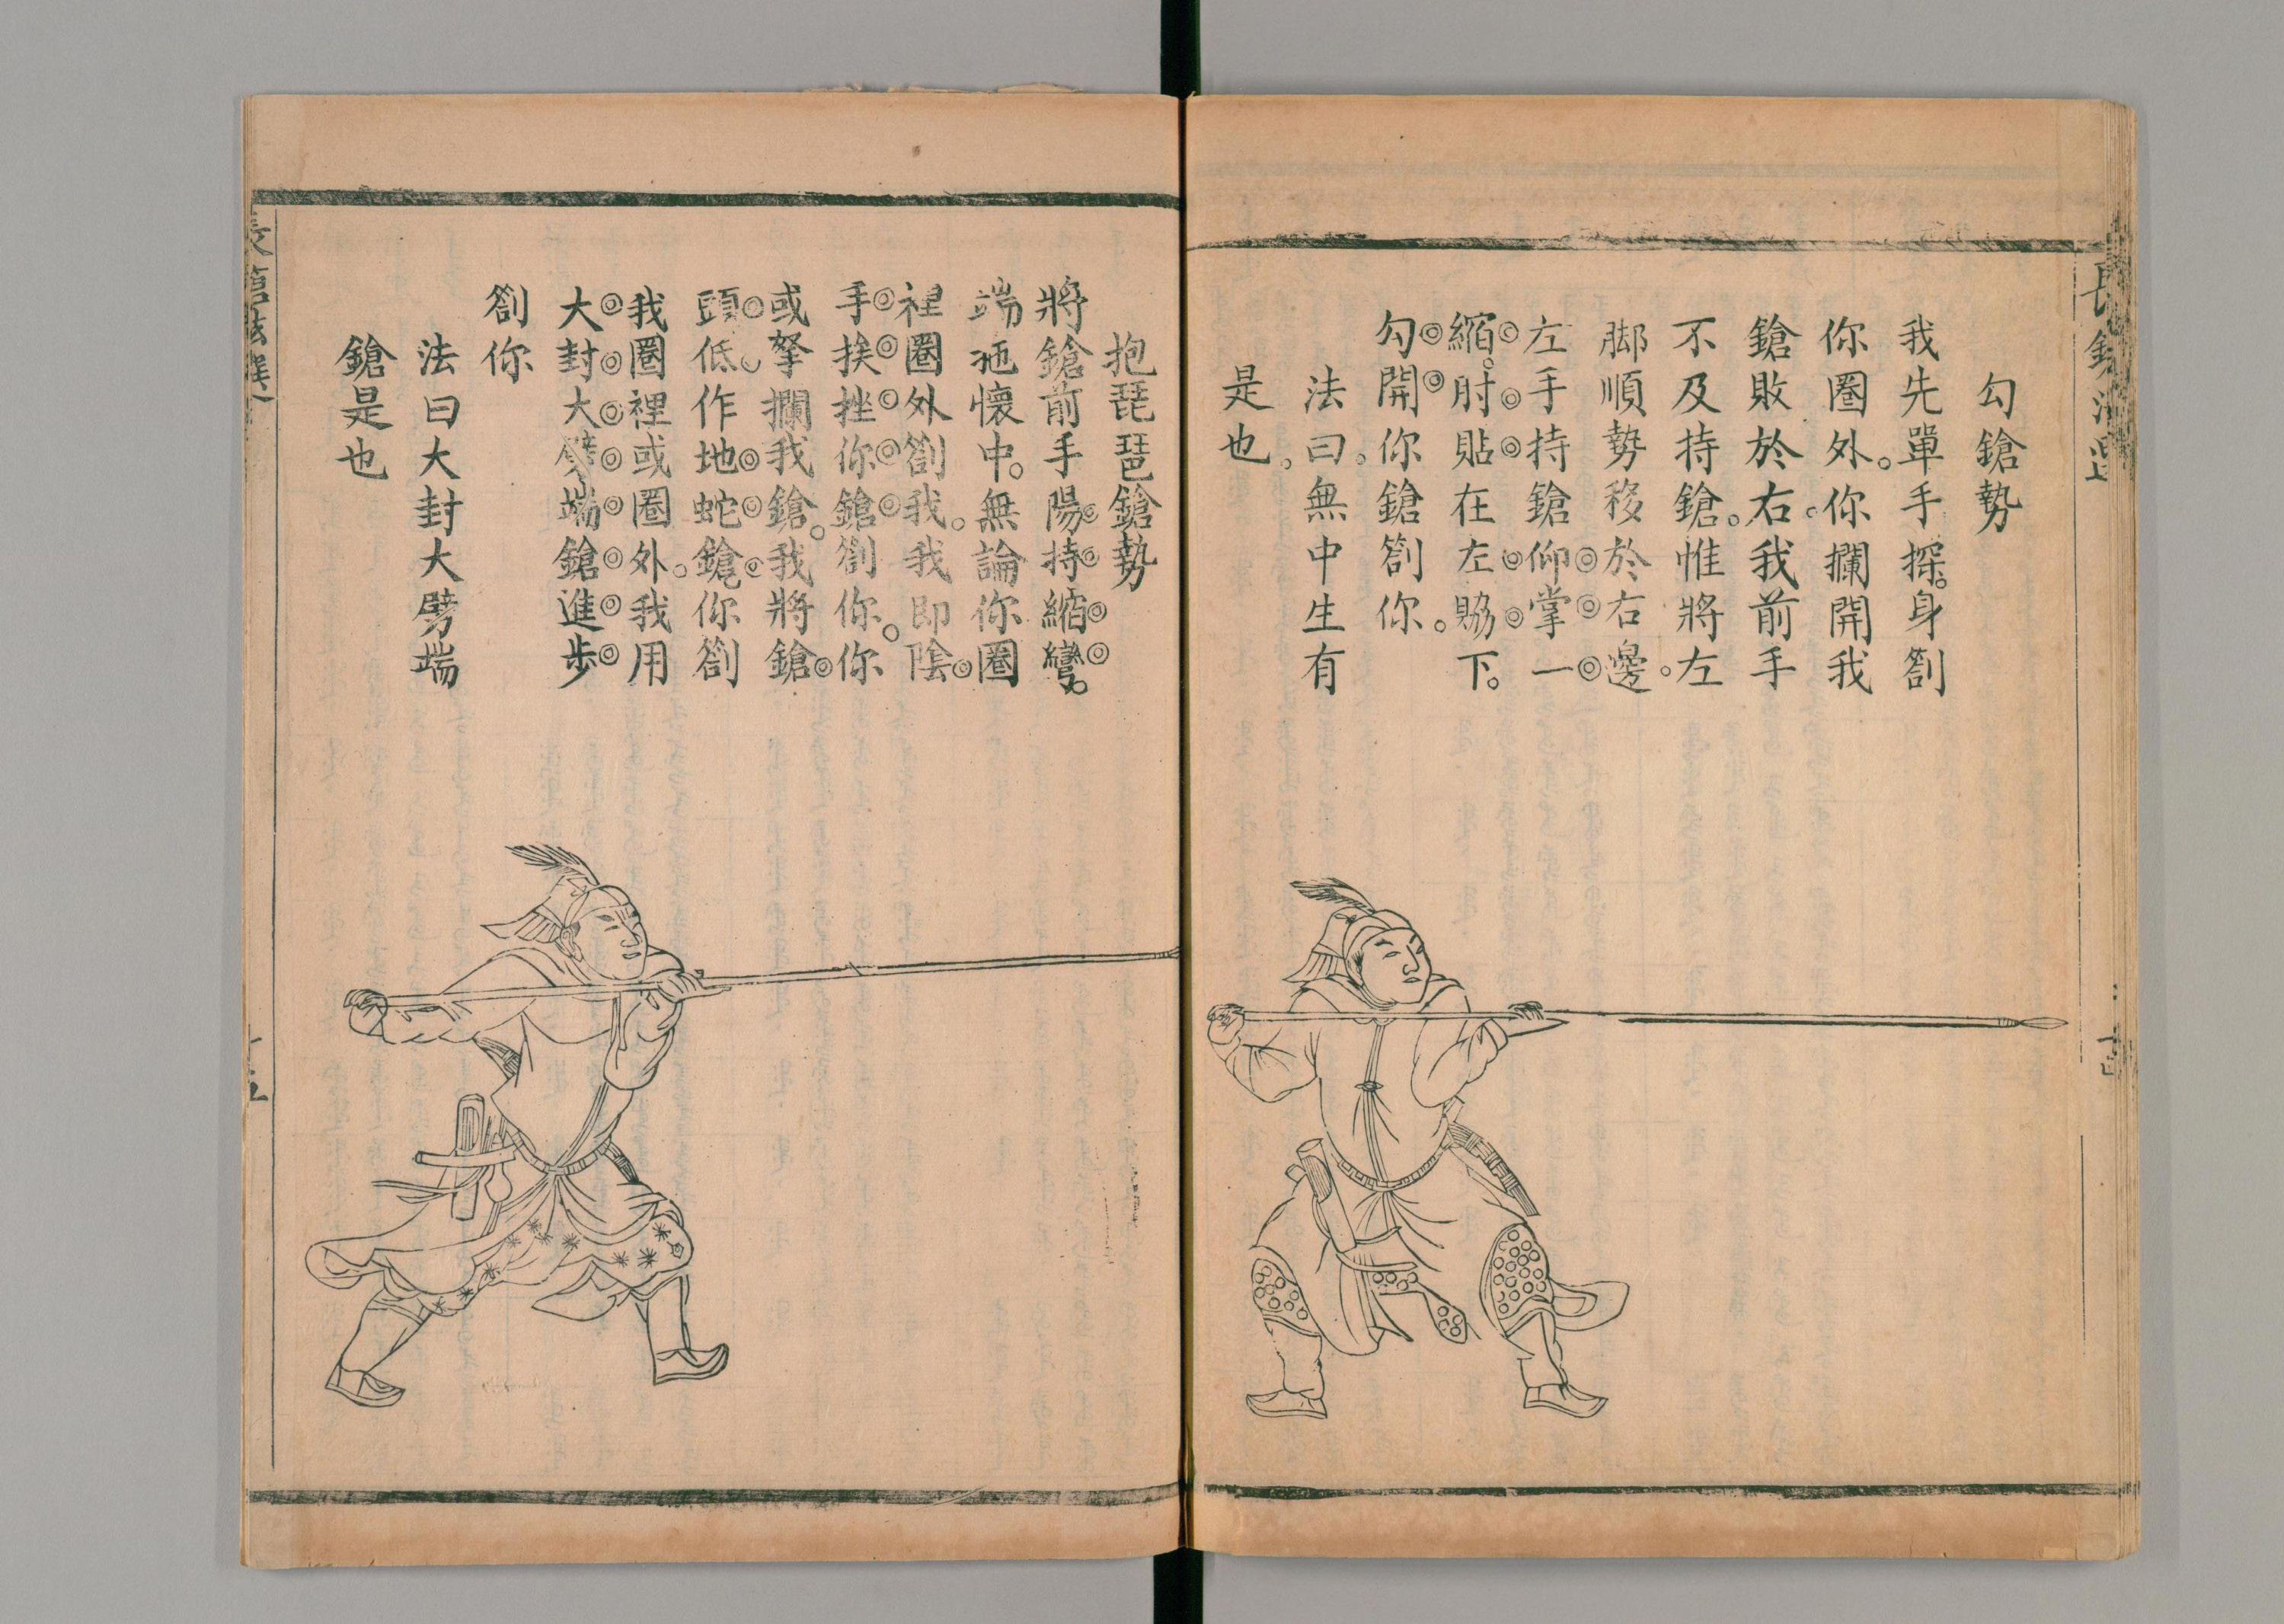 長鎗法選
勾鎗勢
我先單手探。身劄
你圈外。你攔開我
鎗敗於右。我前手
不及持鎗。惟將左
脚順勢移於右邊。
左手持鎗仰掌一
縮。肘貼在左脇下。
勾開你鎗劄你。
法曰。無中生有
是也。
抱琵琶鎗勢
將鎗前手陽持縮彎。
端拖懷中。無論你圈
裡圈外劄我。我即陰
手挨挫你鎗劄你。你
或拏攔我鎗。我將鎗
頭低。作地蛇鎗。你劄
我圈裡或圈外。我用
大封大劈端鎗進步
劄你
法曰大封大劈端
鎗是也
長鎗法選
十五